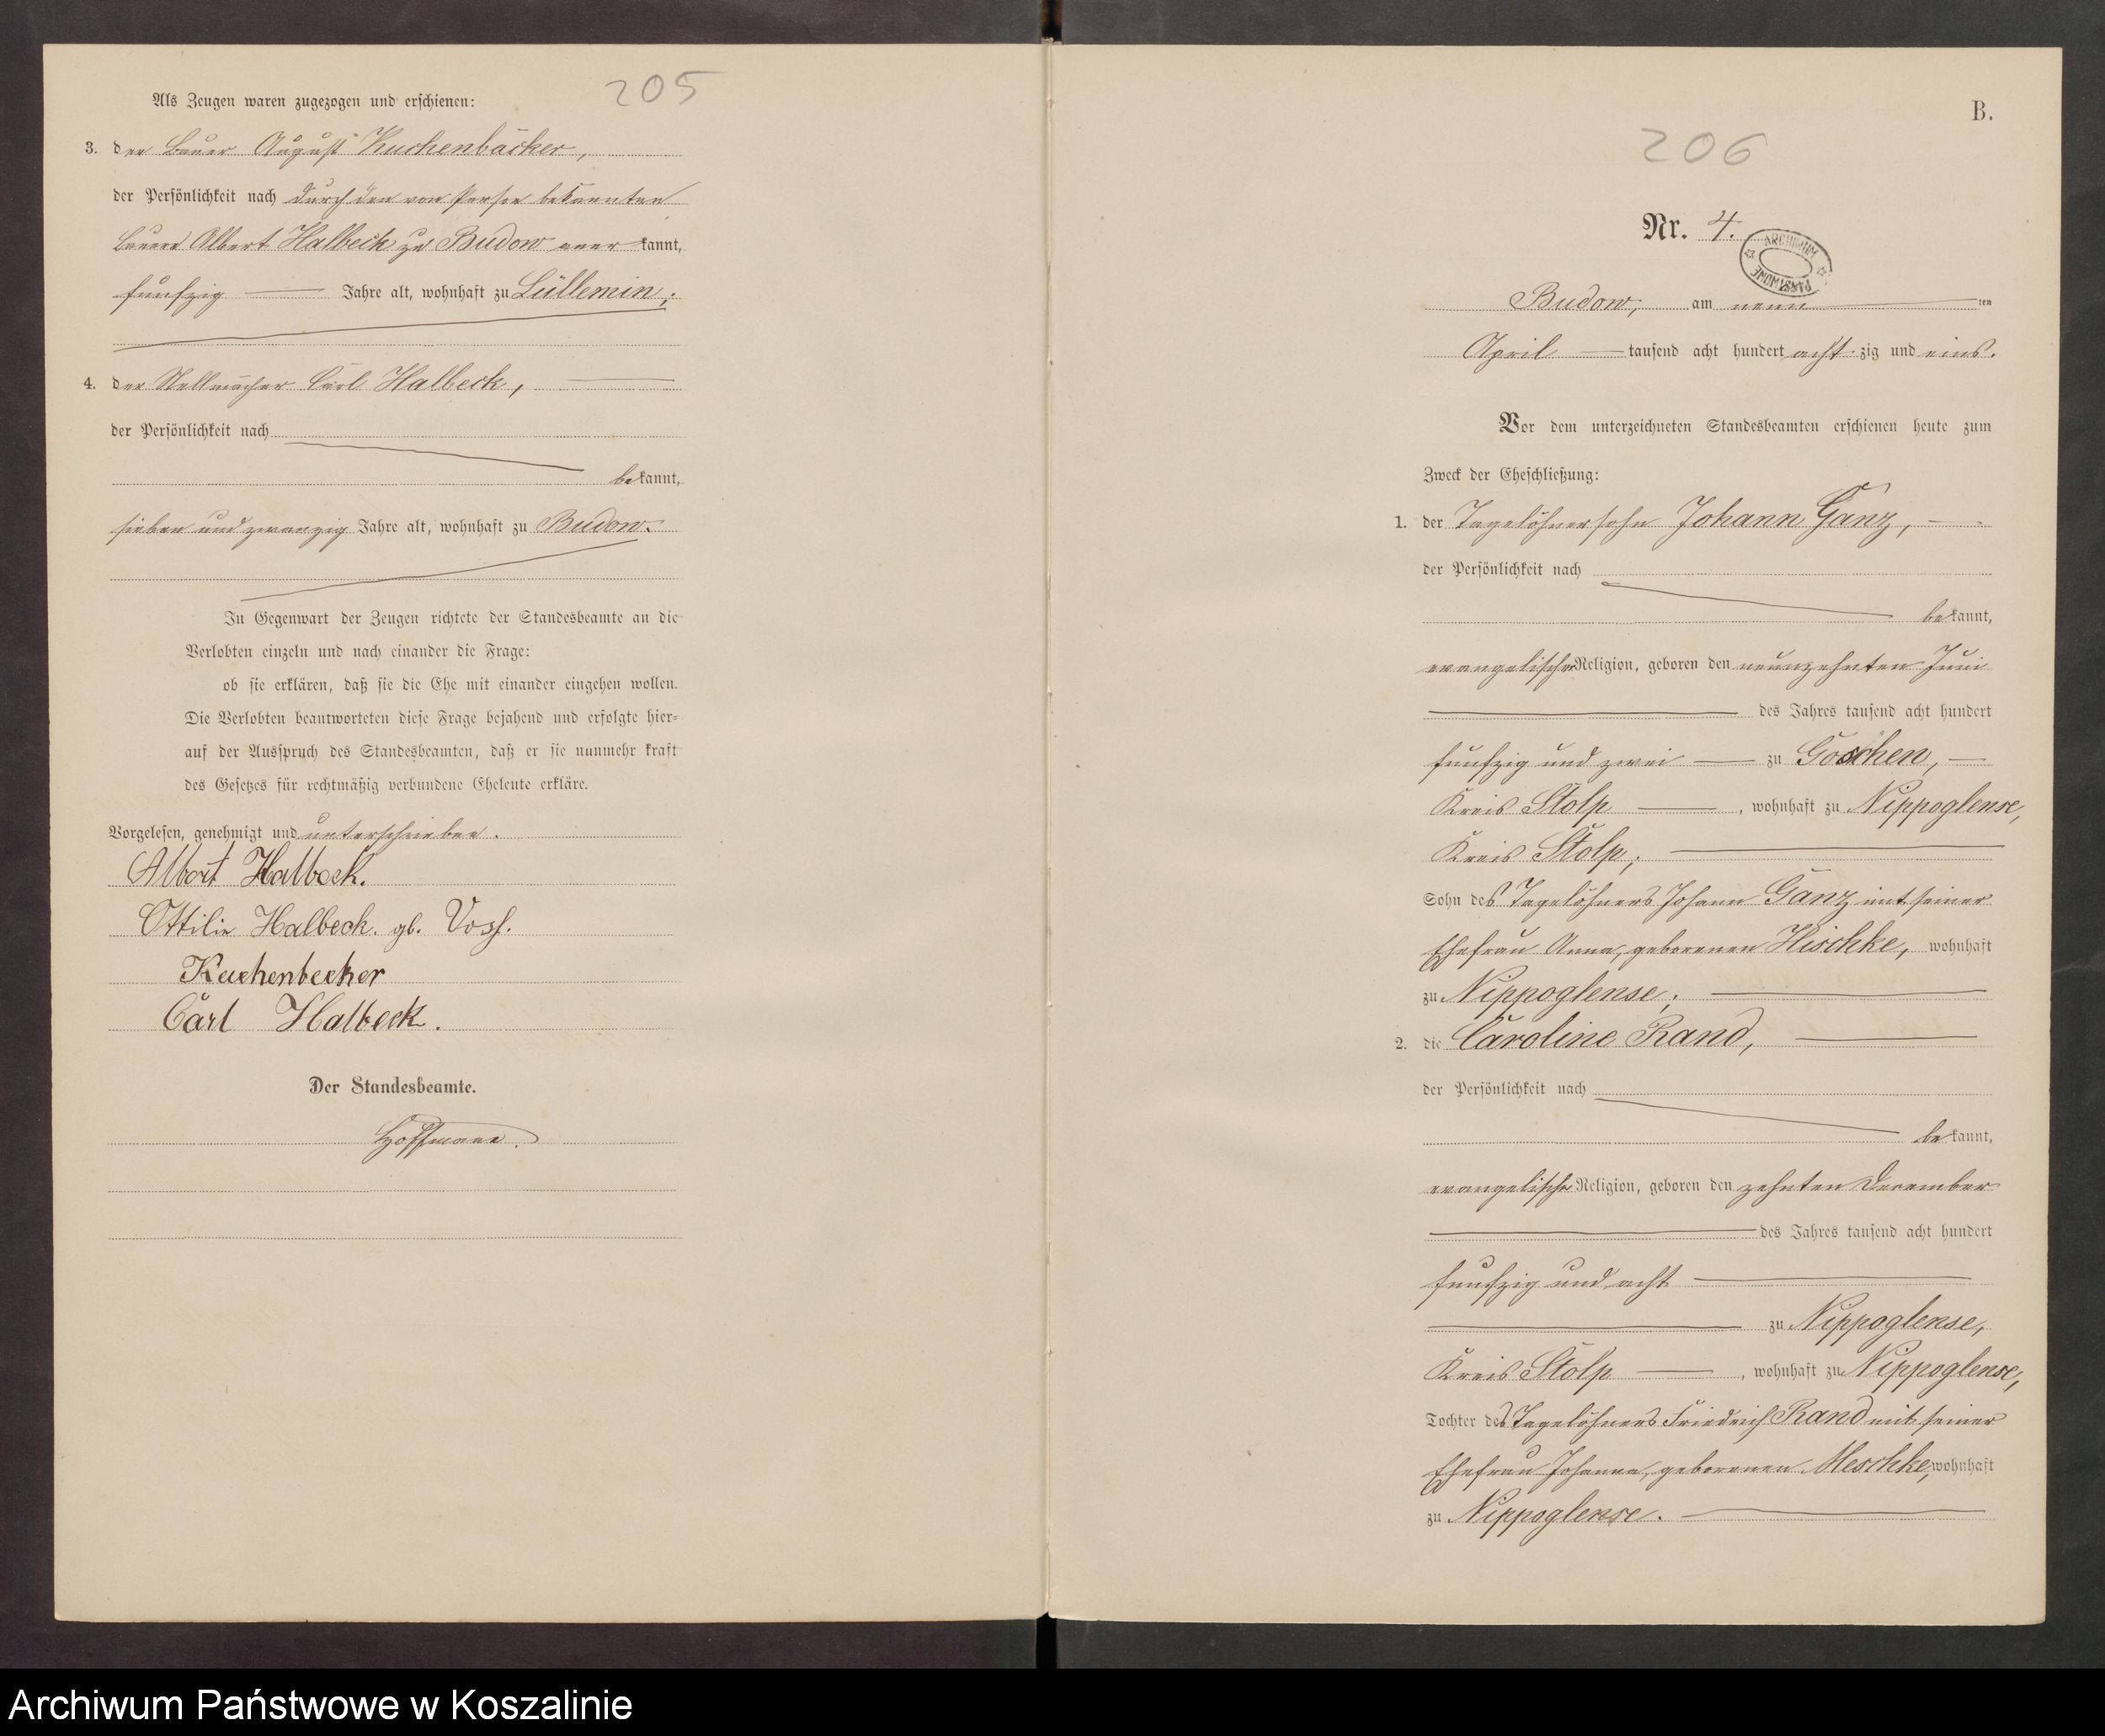 205
Als Zeugen waren zugezogen und erschienen:
3. der Bauer August Kuchenbäcker,
der Persönlichkeit nach durch den von Person bekannten
Bauer Albert Halbeck zu Budow aner kannt,
funfzig Jahre alt, wohnhaft zu Lüllemin;
4. der Stellmacher Carl Halbeck,
der Persönlichkeit nach
be kannt,
sieben und zwanzig Jahre alt, wohnhaft zu Budow.
In Gegenwart der Zeugen richtete der Standesbeamte an die
Verlobten einzeln und nach einander die Frage:
ob sie erklären, daß sie die Ehe mit einander eingehen wollen.
Die Verlobten beantworteten diese Frage bejahend und erfolgte hier=
auf der Ausspruch des Standesbeamten, daß er sie nunmehr kraft
des Gesetzes für rechtmäßig verbundene Eheleute erkläre.
Vorgelesen, genehmigt und unterschrieben.
Albert Halbeck.
Ottilie Halbeck. gb. Voss.
Kuchenbecker
Carl Halbeck.
Der Standesbeamte.
Hoffmann.
B.
206
Nr. 4.
ARCHIWUM PAŃSTWOWE
Budow, am neun ten
April tausend acht hundert acht zig und eins.
Vor dem unterzeichneten Standesbeamten erschienen heute zum
Zweck der Eheschließung:
1. der Tagelöhnersohn Johann Ganz,
der Persönlichkeit nach
be kannt,
evangelischer Religion, geboren den neunzehnten Juni
des Jahres tausend acht hundert
funfzig und zwei zu Goschen,
Kreis Stolp, wohnhaft zu Nippoglense,
Kreis Stolp;
Sohn des Tagelöhners Johann Ganz mit seiner
Ehefrau Anna, geborenen Hischke, wohnhaft
zu Nippoglense;
2. die Caroline Rand,
der Persönlichkeit nach
be kannt,
evangelischer Religion, geboren den zehnten December
des Jahres tausend acht hundert
funfzig und acht
zu Nippoglense,
Kreis Stolp, wohnhaft zu Nippoglense,
Tochter des Tagelöhners Friedrich Rand mit seiner
Ehefrau Johanna, geborenen Meschke, wohnhaft
zu Nippoglense.
Archiwum Państwowe w Koszalinie